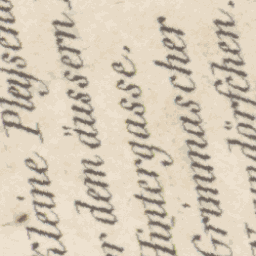 Kleine Pleysen
dem äussern
Hintergasse.
Grimmascher
dörfchen.